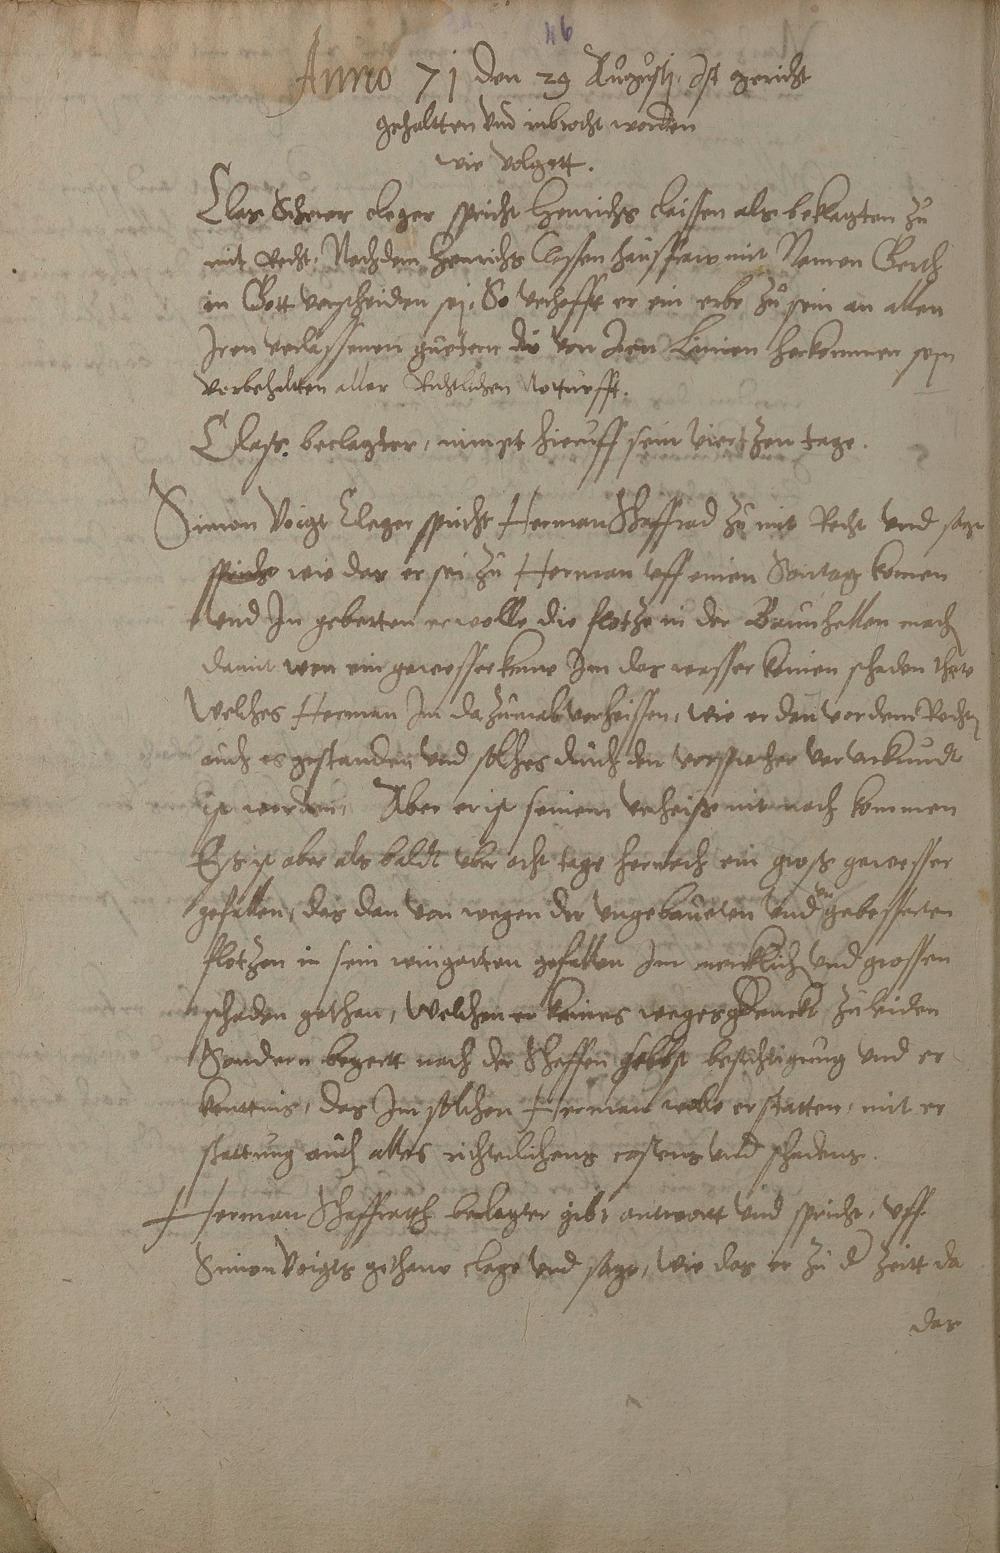 46
Anno 71 den 29 Augusti, Ist gericht
gehaltten und inbrocht worden
wie volgett.
Clas Scherer cleger spricht Henrichs claissen als beklagten zu
mit Recht, Nachdem Henrichs Classen hausfraw mit Namen Gerth
in Gott verscheiden sej, So verhofft er ein erbe zu sein an allen
Iren verlassenen guetern die von Iren Linien herkommen sein
vorbehaltten aller Richtlichen Notturfft.
Claß beclagter, nimpt hieruff sein viertzen tage.
Simon Voigt Cleger spricht Herman Schaffrad zu mit Recht und sagt
spricht wie das er sei zu Herman uff einen Sontag komen
und In gebetten er wolle die flotze in der Baunhellen mach
damit wen ein gewesser keme Im das wasser keinen schaden thete
Welches Herman Im dazumals verheissen, wie er dan vor dem Rechte
auch es gestanden und solches durch den vorspracher verurkundt
ist worden, Aber er ist seinem verheiß nit nach kommen
Eß ist aber als baldt uber acht tage hernach ein groß gewesser
gefallen, das dan von wegen der ungebaueten und ungebesserten
flotzen in sein wingarten gefallen Im mercklich und grossen
schaden gethan, Welchen er keines weges gedenckt zu leiden
Sondern begertt nach der Scheffen selbst besichtigung und er
kenttnis, das Im solchen Herman wolle erstatten, mit er
stattung auch alles richterlichens costens und schadens.
Herman Schaffrath beclagter gibt antwortt und spricht, uff
Simon Voigts gethane clage und sage, wie das er zu d Zeitt da
das